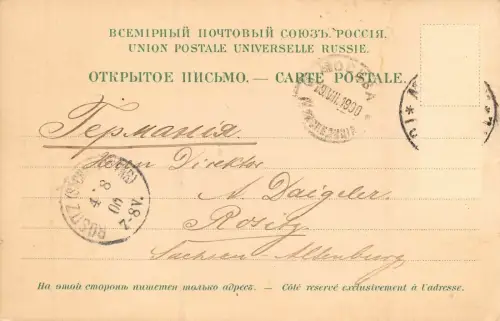 ВСЕМІРНЫЙ ПОЧТОВЫЙ СОЮЗЪ. РОССІЯ.
UNION POSTALE UNIVERSELLE RUSSIE.
ОТКРЫТОЕ ПИСЬМО. — CARTE POSTALE.
МОСКВА
Германія.
Herrn Direktor
A. Daigeler
ROSITZ
4 8
06
7-8V.
Rositz
Sachsen Altenburg
На этой сторонѣ пишется только адресъ. — Côté reservé exclusivement à l'adresse.